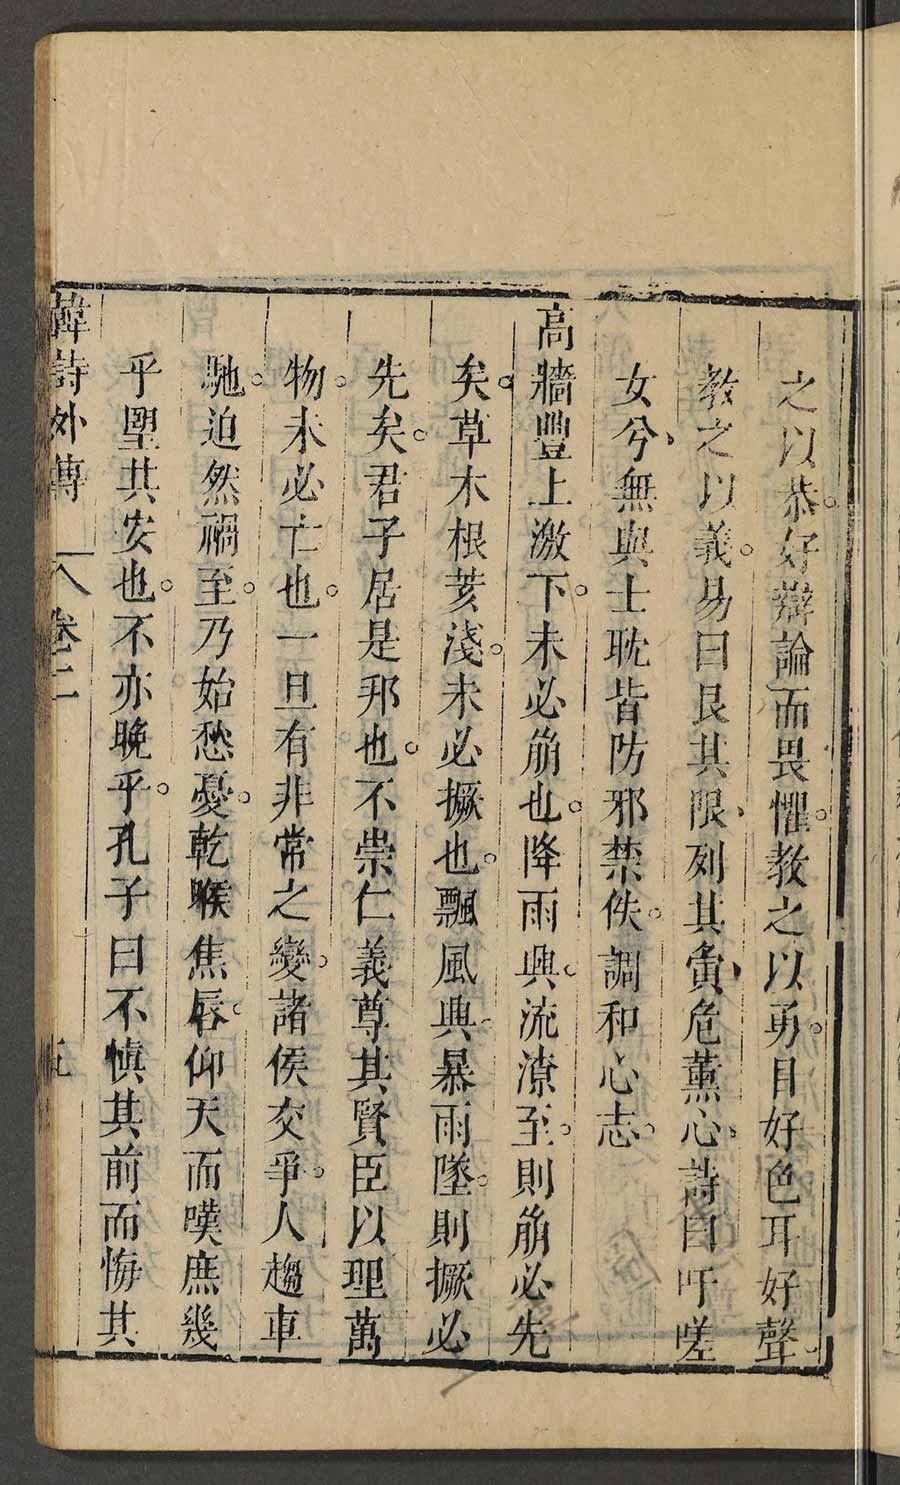 之以恭。好辯論而畏懼。教之以勇。目好色耳好聲
教之以義。易曰艮其限、列其夤、危薰心。詩曰吁嗟
女兮、無與士耽皆防邪禁佚。調和心志。
高牆豐上激下。未必崩也。降雨興。流潦至。則崩必先
矣。草木根荄淺。未必撅也。飄風興、暴雨墜。則撅必
先矣。君子居是邦也。不崇仁義尊其賢臣以理萬
物。未必亡也。一旦有非常之變。諸侯交爭。人趨車
馳。迫然禍至。乃始愁憂。乾喉焦唇。仰天而嘆庶幾
乎望其安也。不亦晚乎。孔子曰不慎其前而悔其
韓詩外傳 卷二 五